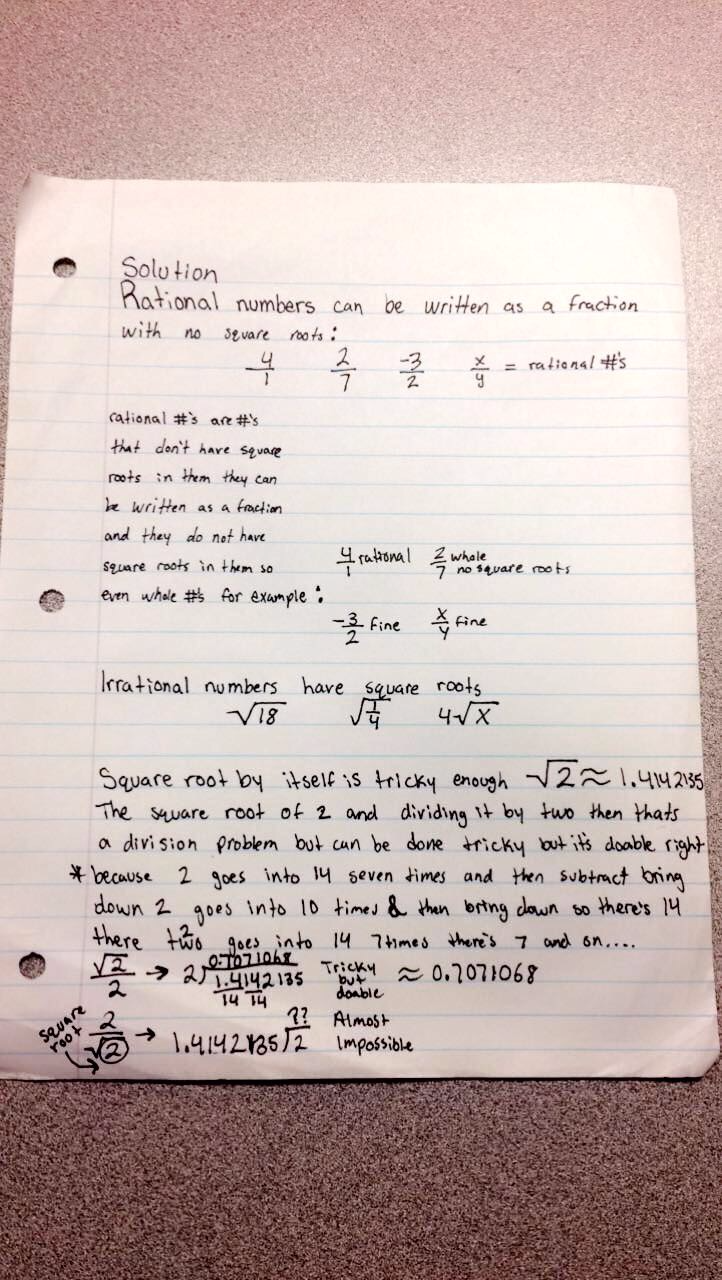 Solution
Rational numbers can be written as a fraction
with no square roots:
4/1 2/7 -3/2 x/y = rational #'s
rational #'s are #'s
that don't have square
roots in them they can
be written as a fraction
and they do not have
square roots in them so
even whole #'s for example:
4/1 rational 2/7 whole no square roots
-3/2 fine x/y fine
Irrational numbers have square roots
√18 √1/4 4√x
Square root by itself is tricky enough √2 ≈ 1.4142135
The square root of 2 and dividing it by two then thats
a division problem but can be done tricky but it's doable right
* because 2 goes into 14 seven times and then subtract bring
down 2 goes into 10 times & then bring down so there's 14
there two 2 goes into 14 7times there's 7 and on....
√2/2 → 2)1.4142135 0.7071068 14 14 Tricky but doable ≈ 0.7071068
square root 2/√2 → 1.4142135)2 ?? Almost Impossible